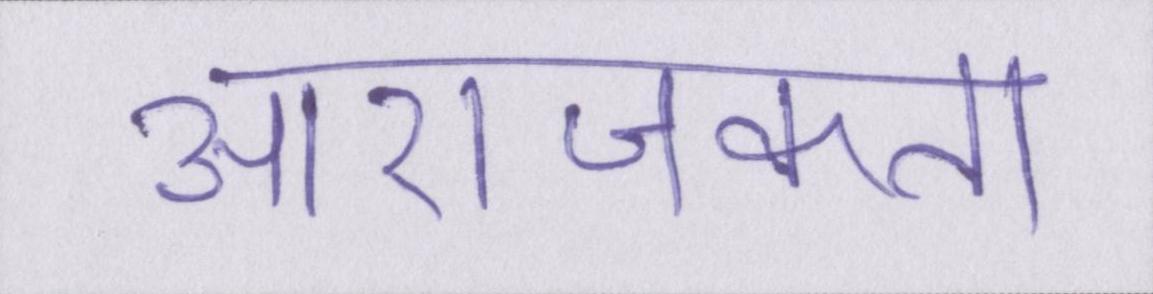 आराजकता